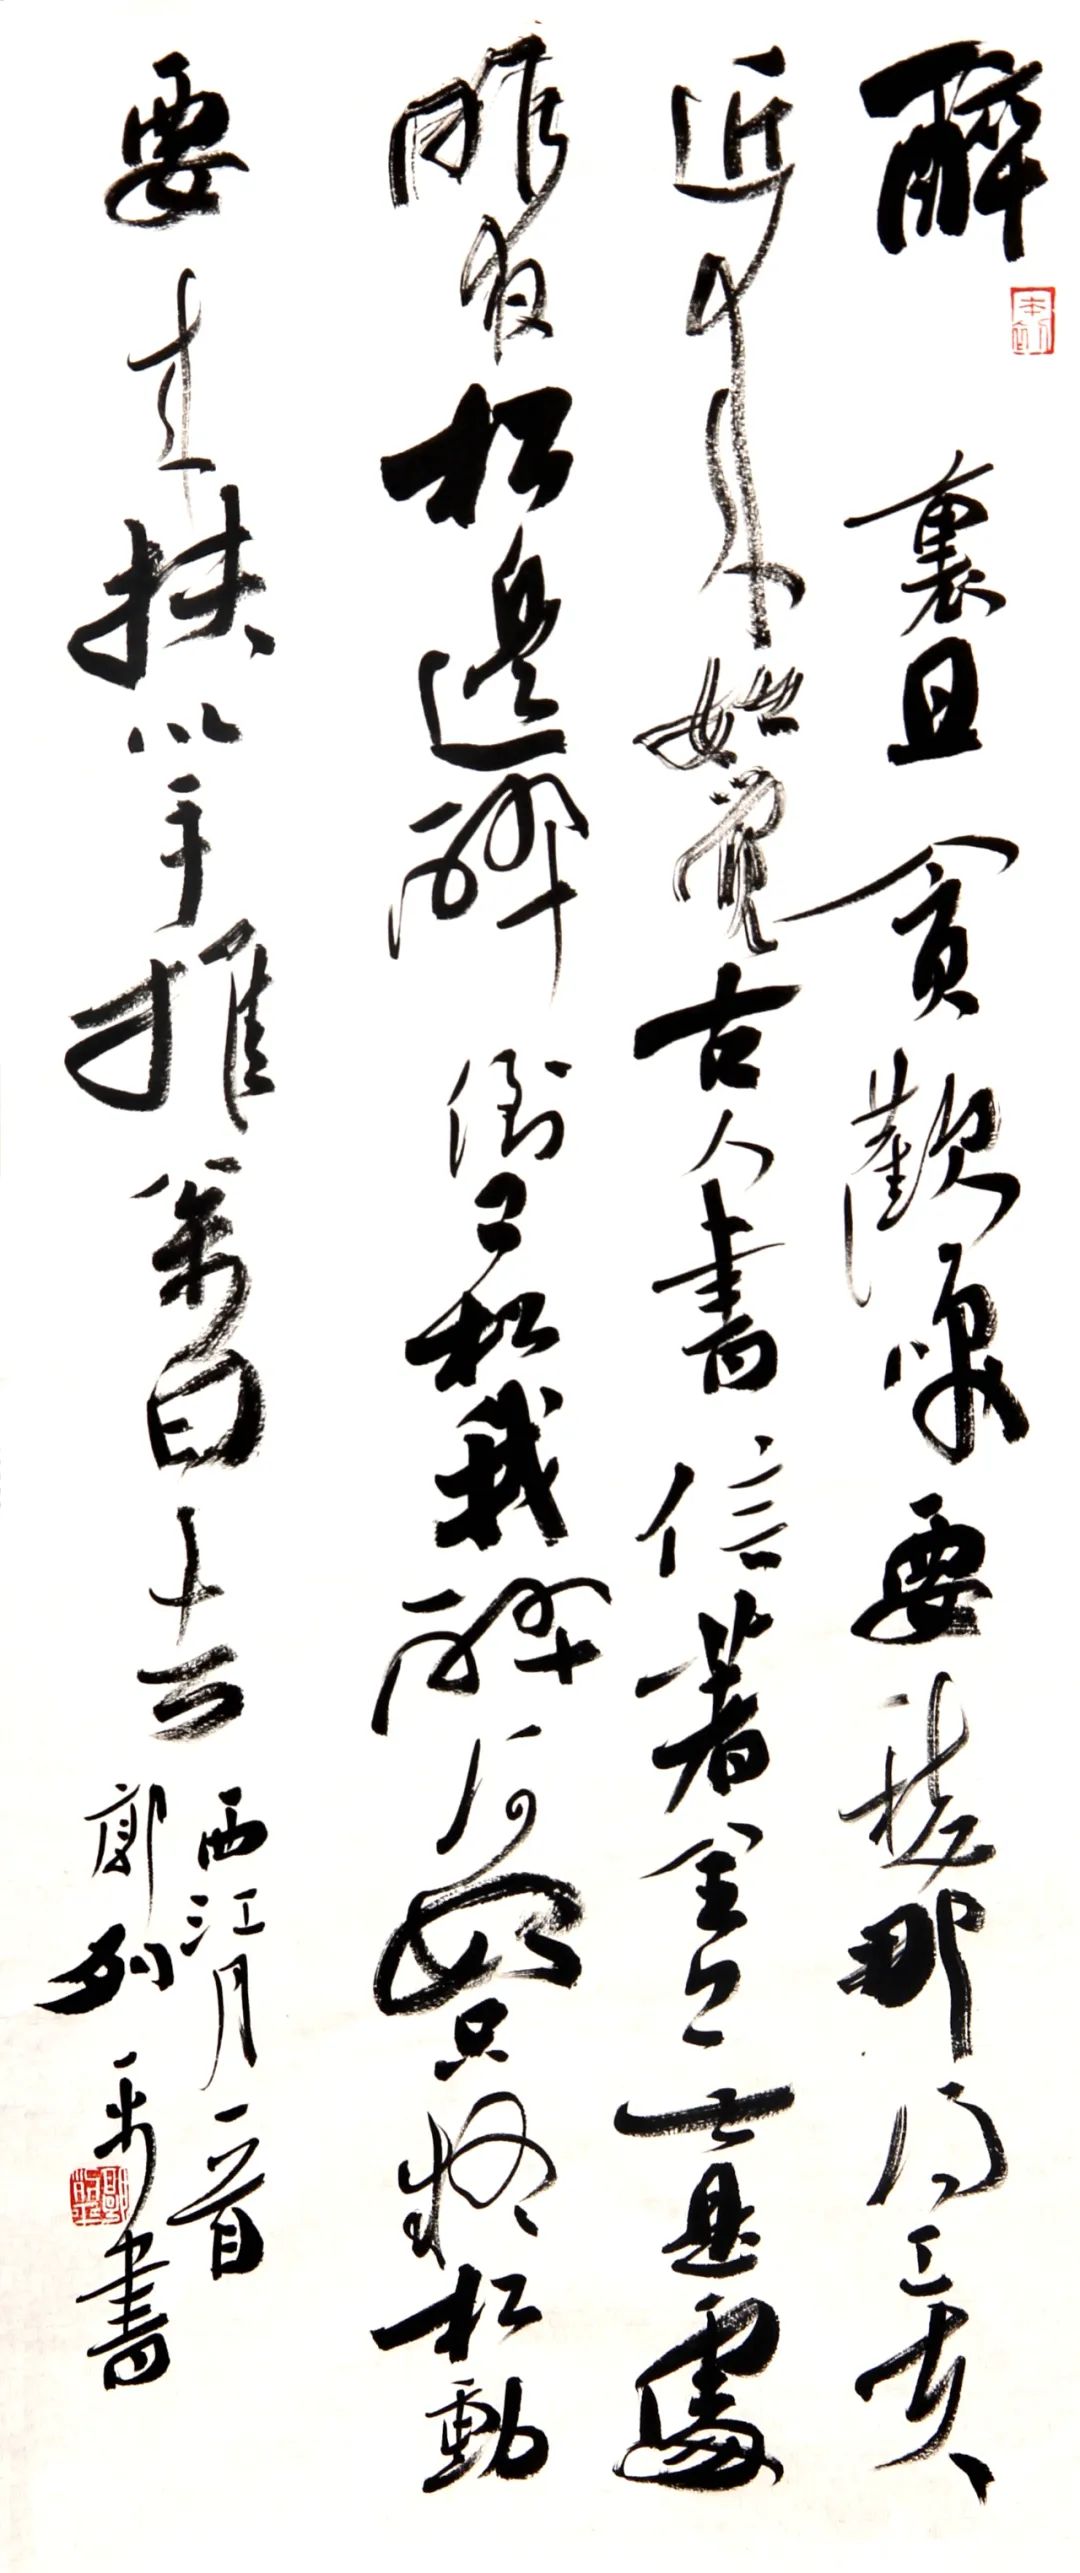 醉裏且貪歡咲要愁那得工夫
近來始覺古人書信著全無是處
昨夜松邊醉倒問松我醉何如只疑松動
要來扶以手推松曰去
西江月一首
郭列書